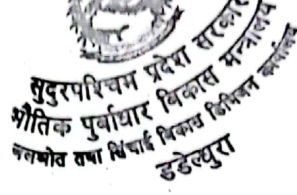 सुदुरपश्चिम प्रदेश सरकार
भौतिक पुर्वाधार विकास मन्त्रालय
जलस्रोत तथा सिंचाई विकास डिभिजन कार्यालय
डडेल्धुरा